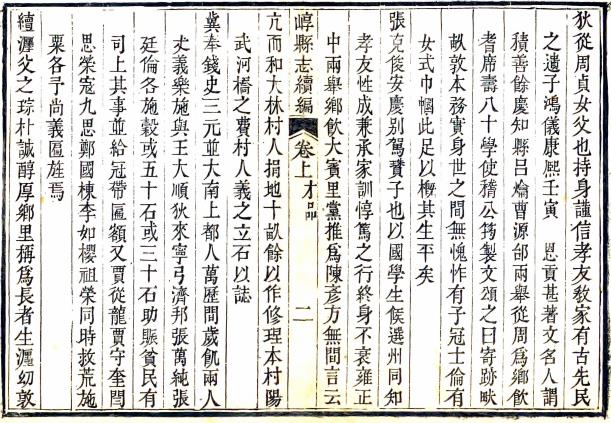 狄從周貞女父也持身謹信孝友教家有古先民
之遺子鴻儀康熙壬寅 恩貢甚著文名人謂
積善餘慶知縣呂爚曹源郃兩舉從周爲鄉飲
耆席壽八十學使稽公筠製文頌之曰寄跡畎
畝敦本務實身世之間無愧怍有子冠士倫有
女式巾幗此足以概其生平矣
張克俊安慶别駕贊子也以國學生候選州同知
孝友性成兼承家訓惇篤之行終身不衰雍正
中兩舉鄉飲大賓里黨推爲陳彥方無間言云
崞縣志續編 卷上才品 二
亢而和大林村人捐地十畝餘以作修理本村陽
武河橋之費村人義之立石以誌
冀奉錢史三元並大南上都人萬歷間歲飢兩人
丈義樂施與王大順狄來寧弓濟邦張萬純張
廷倫各施穀或五十石或三十石助賑貧民有
司上其事並給冠帶匾額又賈從龍賈守奎閆
思榮寇九思鄭國棟李如櫻祖榮同時救荒施
粟各予尚義匾旌焉
續瀍父之琮朴誠醇厚鄉里稱爲長者生瀍幼敦